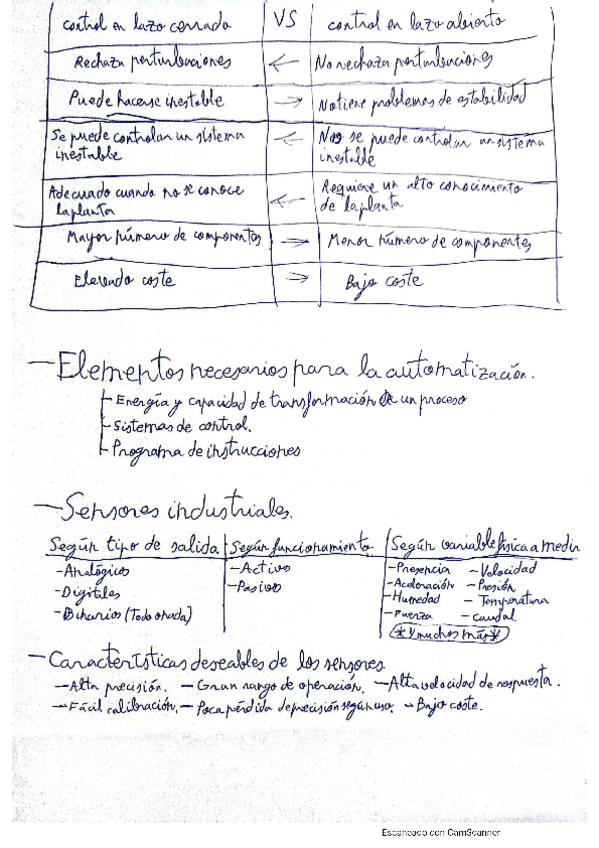 control en lazo cerrado VS control en lazo abierto
Rechaza perturbaciones ← No rechaza perturbaciones
Puede hacerse inestable → No tiene problemas de estabilidad
Se puede controlar un sistema inestable ← No se puede controlar un sistema inestable
Adecuado cuando no se conoce la planta ← Requiere un alto conocimiento de la planta
Mayor número de componentes → Menor número de componentes
Elevado coste → Bajo coste
— Elementos necesarios para la automatización.
- Energía y capacidad de transformación de un proceso
- Sistemas de control.
- Programa de instrucciones
— Sensores industriales.
Según tipo de salida | Según funcionamiento | Según variable física a medir
- Analógicos - Activo - Presencia - Velocidad
- Digitales - Pasivo - Aceleración - Presión
- Binarios (Todo o nada) - Humedad - Temperatura
- Fuerza - caudal
*Y muchos más*
— Características deseables de los sensores
— Alta precisión. — Gran rango de operación. — Alta velocidad de respuesta.
— Fácil calibración. — Poca pérdida de precisión según uso. — Bajo coste.
Escaneado con CamScanner